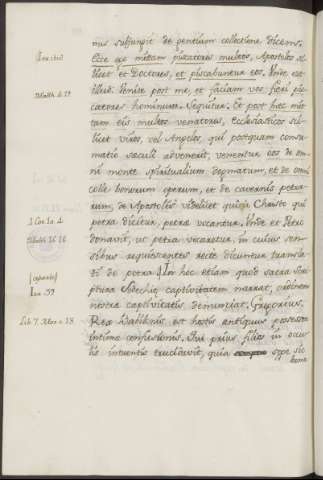 nus subjungit de gentium collectione dicens.
Ecce ego mittam piscatores multos, Apostolos sci
licet et Doctores, et piscabuntur eos. Unde est
illud. Venite post me, et faciam vos fieri pis
catores hominum. Sequitur. Et post haec mit
tam eis multos venatores, Ecclesiasticos sci
licet viros, vel Angelos, qui postquam consu
matio saeculi advenerit, venentur eos de om
ni monte spiritualium dogmatum, et de omni
colle bonorum operum, et de cavernis petra
rum, de Apostolis videlicet quique Christo qui
petra dicitur, petrae vocantur. Unde et Petro
donavit, ut petra vocaretur, in cuius sen
sibus aquiescentes recte dicuntur transla
ti de petra. In hoc etiam quod sacra scri
ptura Sedechie captivitatem narrat, ordinem
nostrae captivitatis denunciat. Gregorius.
Rex Babilonis est hostis antiquus possessor
intimae confusionis. Qui prius filios in ocu
lis intuentis trucidavit, quia spe sic
Matth. 4. 19
1 Cor. 10. 4
Matth. 16. 18
Lib. 7. Mor. c. 13.